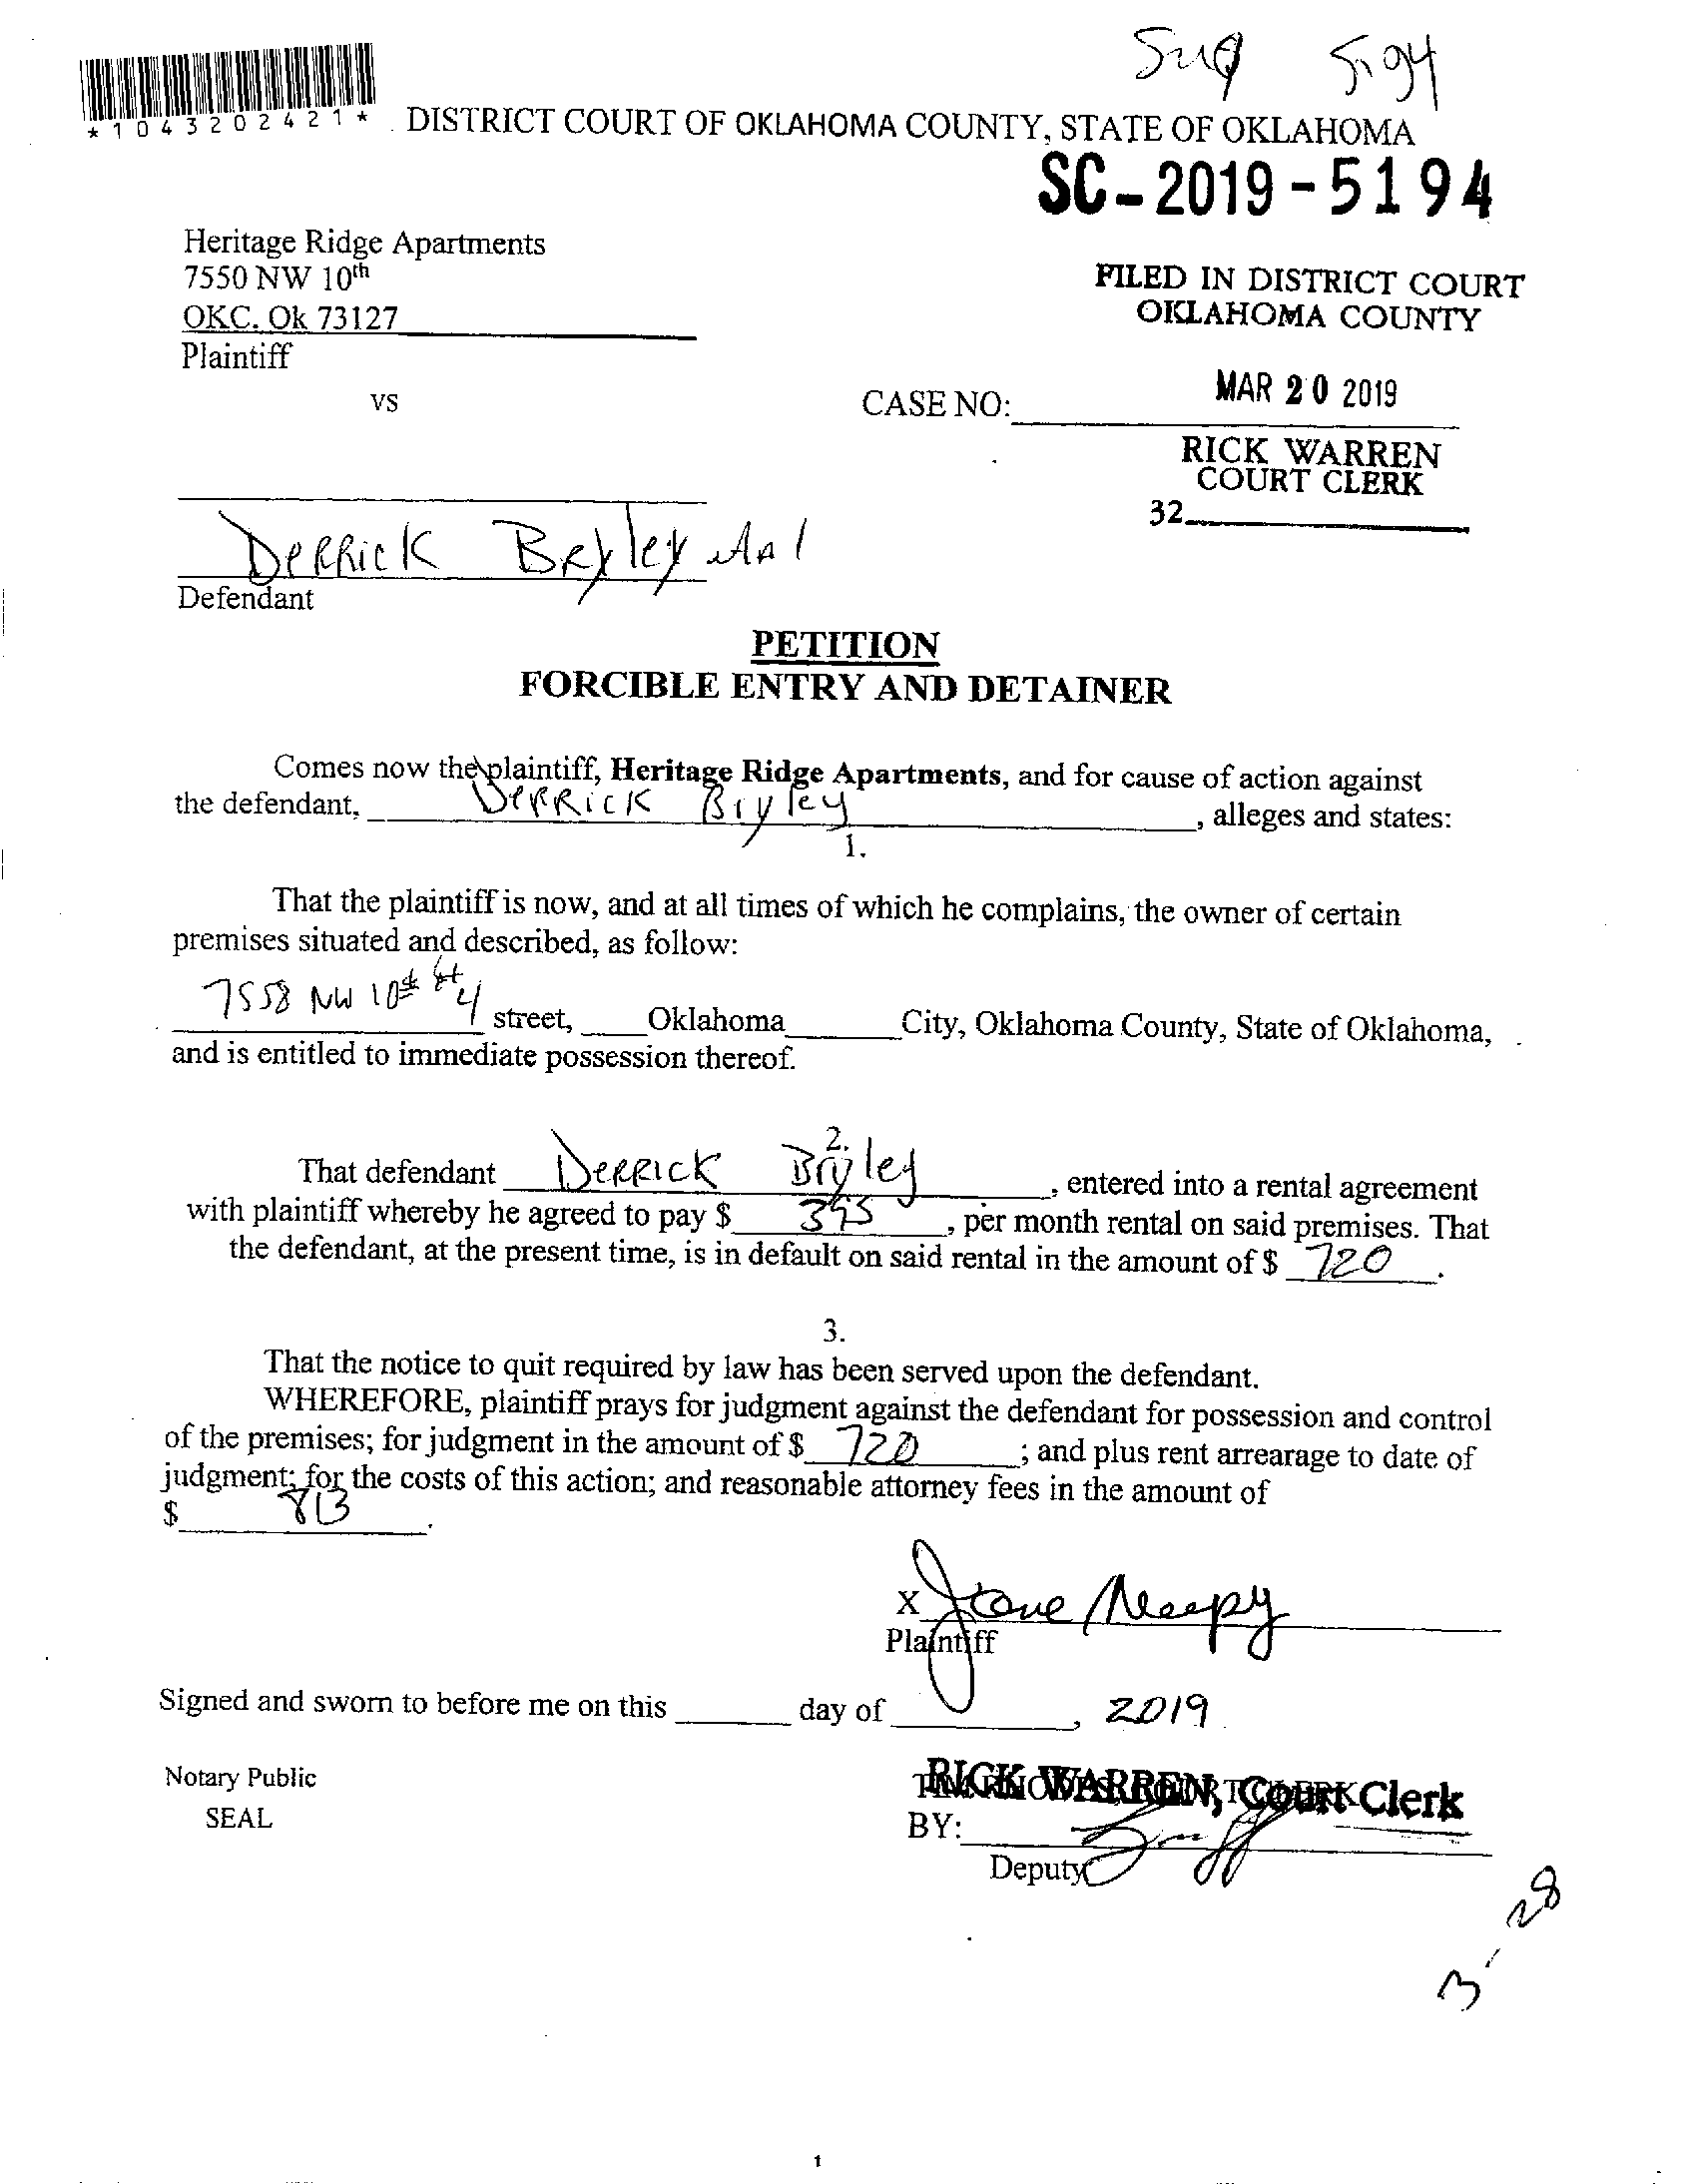 5194
*1043202421*
DISTRICT COURT OF OKLAHOMA COUNTY, STATE OF OKLAHOMA
SC-2019-5194
Heritage Ridge Apartments
7550 NW 10th
OKC. Ok 73127
Plaintiff
FILED IN DISTRICT COURT
OKLAHOMA COUNTY
MAR 20 2019
vs
CASE NO:
RICK WARREN
COURT CLERK
32
Derrick
Defendant
PETITION
FORCIBLE ENTRY AND DETAINER
Comes now the plaintiff, Heritage Ridge Apartments, and for cause of action against
the defendant, Derrick , alleges and states:
1.
That the plaintiff is now, and at all times of which he complains, the owner of certain
premises situated and described, as follow:
7558 NW 10th street, Oklahoma City, Oklahoma County, State of Oklahoma,
and is entitled to immediate possession thereof.
2.
That defendant Derrick , entered into a rental agreement
with plaintiff whereby he agreed to pay $ , per month rental on said premises. That
the defendant, at the present time, is in default on said rental in the amount of $ 720 .
3.
That the notice to quit required by law has been served upon the defendant.
WHEREFORE, plaintiff prays for judgment against the defendant for possession and control
of the premises; for judgment in the amount of $ 720 ; and plus rent arrearage to date of
judgment; for the costs of this action; and reasonable attorney fees in the amount of
$ 813 .
X
Plaintiff
Signed and sworn to before me on this day of , 2019
Notary Public
SEAL
RICK WARREN, Court Clerk
BY:
Deputy
3-28
1